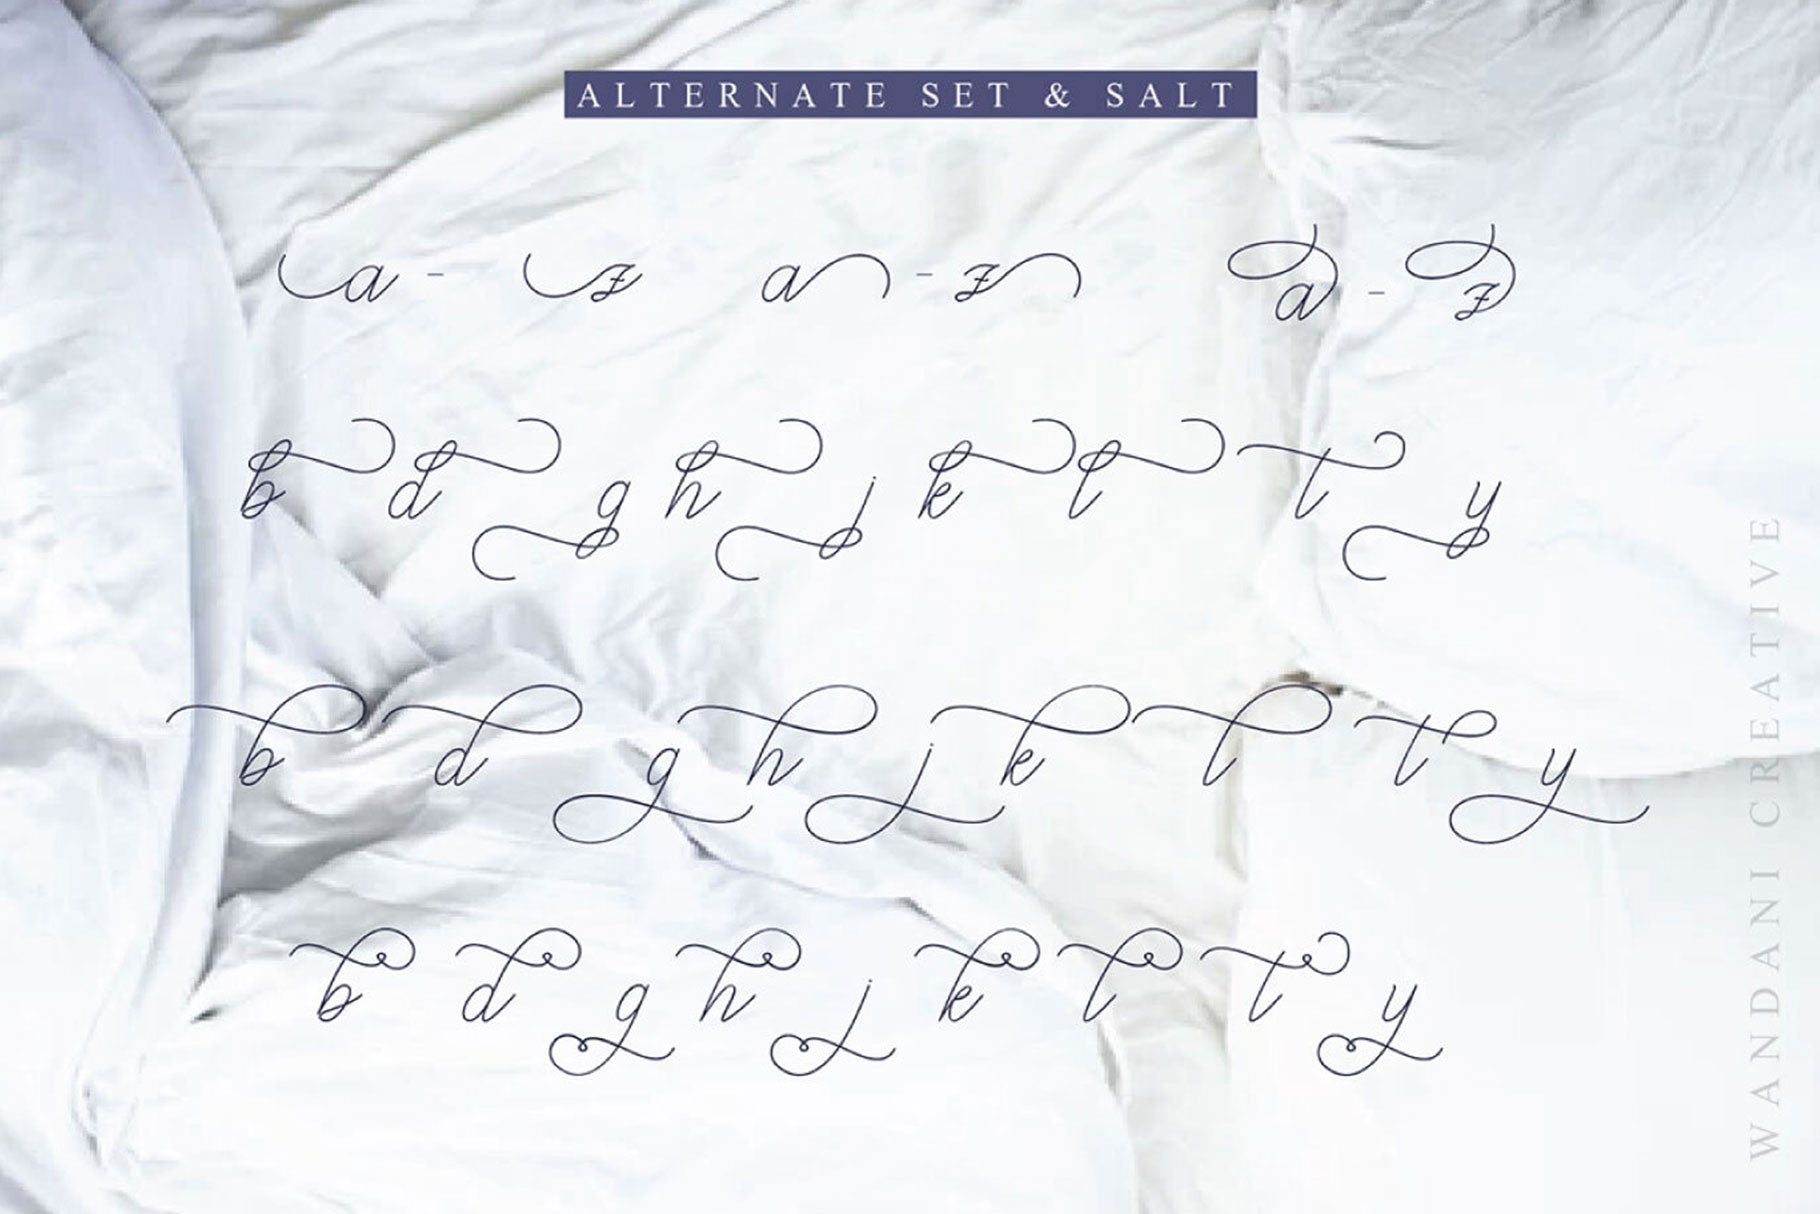 ALTERNATE SET & SALT
a - z a - z a - z
b d g h j k l t y
b d g h j k l t y
b d g h j k l t y
WANDANI CREATIVE